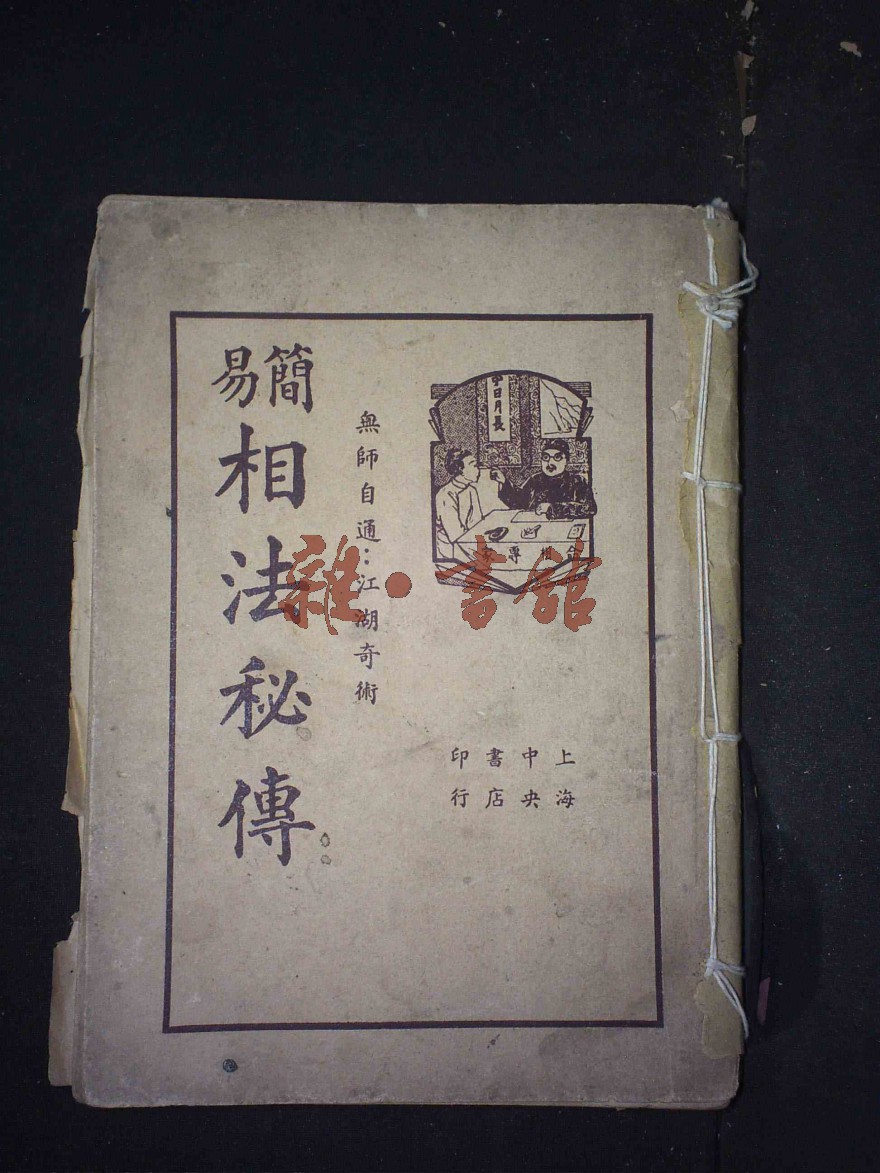 簡易
相法秘傳
無師自通：江湖奇術
上海
中央
書店
印行
日月長
雜·書館